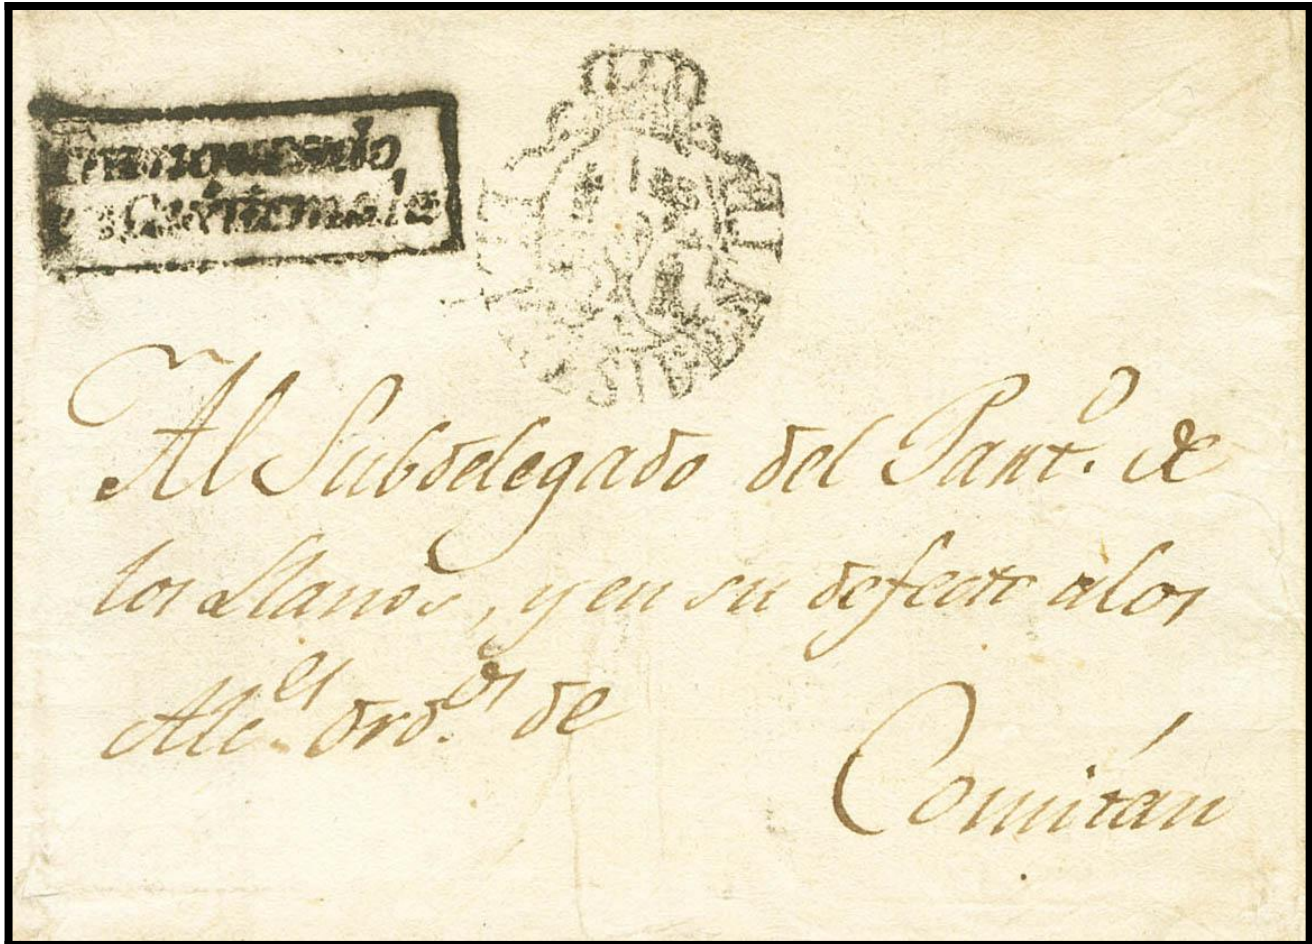 Franqueado
en Guatemala
Al Subdelegado del Part.º de
los Llanos, y en su defecto a los
Alc.es Ord.os de
Comitán